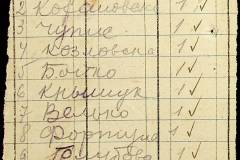 2 Кохановска 1 ✓
3 Чупис 1 ✓
4 Козловска 1 ✓
5 Бойко 1 ✓
6 Кнышук 1 ✓
7 Велько 1 ✓
8 1 ✓
9 Голубова 1 ✓